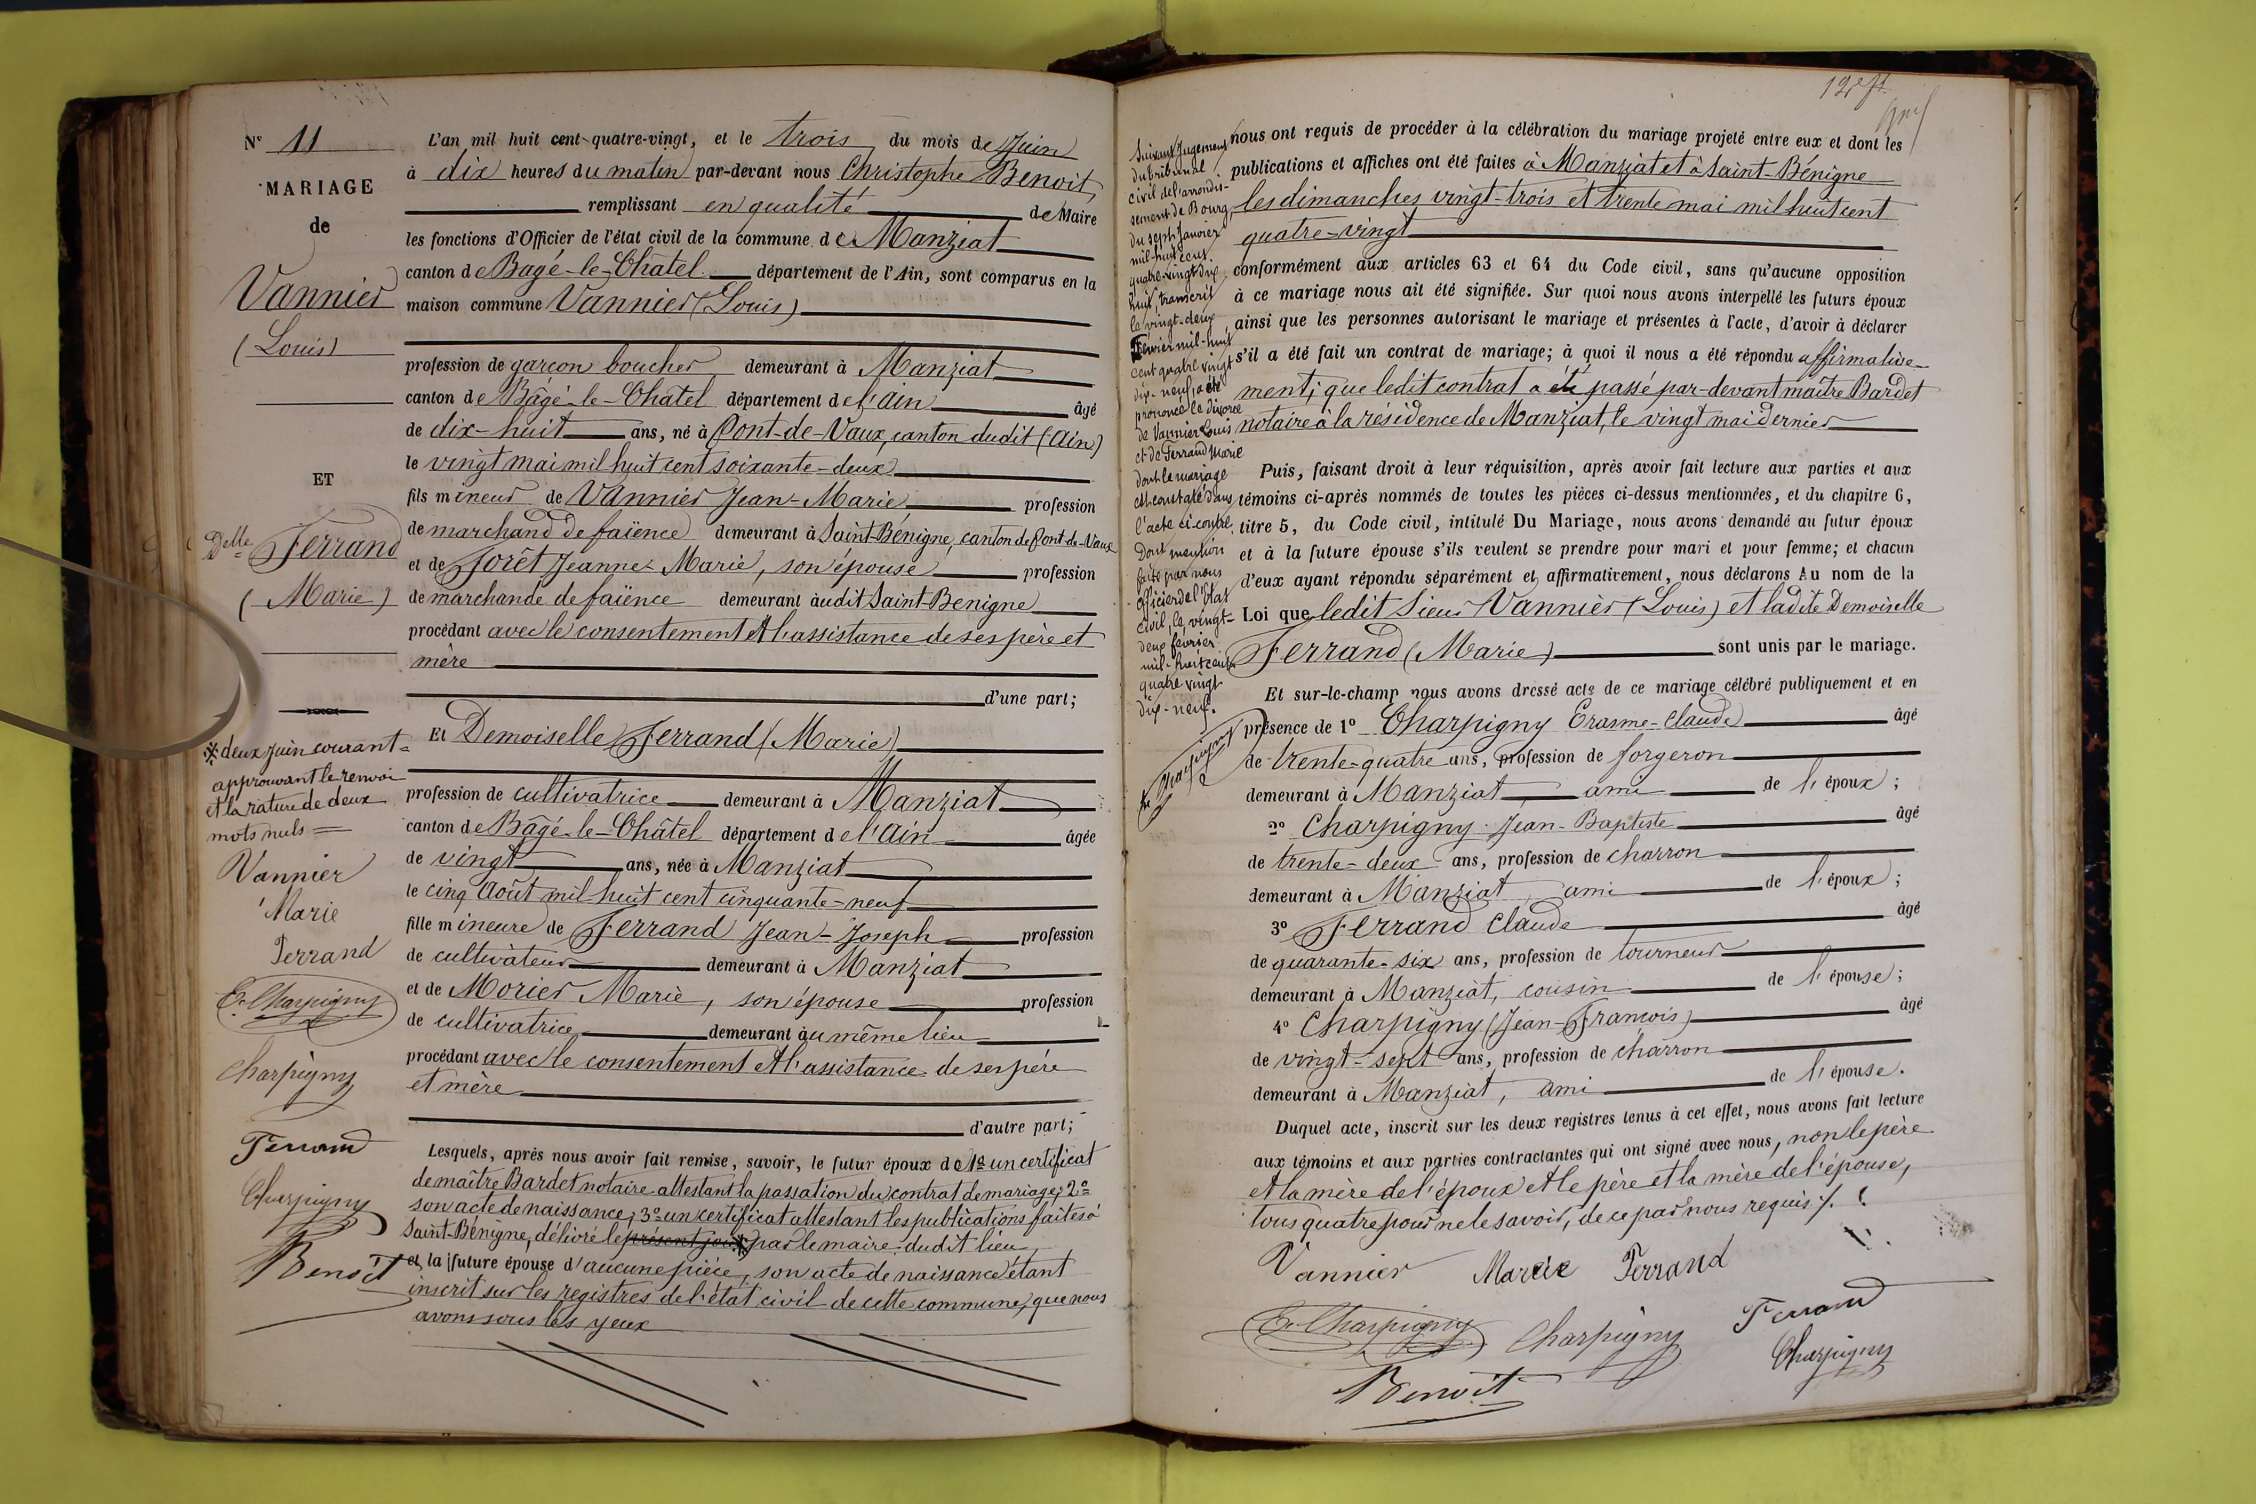 N° 11
MARIAGE
de
Vannier
(Louis)
ET
Delle Ferrand
(Marie)
* deux juin courant =
approuvant le renvoi
et la rature de deux
mots nuls =
Vannier
Marie
Ferrand
E. Charpigny
Charpigny
Ferrand
Charpigny
Benoit
L'an mil huit cent quatre-vingt, et le trois du mois de Juin
à dix heures du matin par-devant nous Christophe Benoit,
remplissant en qualité de Maire
les fonctions d'Officier de l'état civil de la commune de Manziat
canton de Bagé-le-Châtel département de l'Ain, sont comparus en la
maison commune Vannier (Louis)
profession de garçon boucher demeurant à Manziat
canton de Bâgé-le-Châtel département de l'ain âgé
de dix-huit ans, né à Pont-de-Vaux, canton dudit (Ain)
le vingt mai mil huit cent soixante-deux
fils mineur de Vannier Jean-Marie profession
de marchand de faïence demeurant à Saint-Bénigne, canton de Pont-de-Vaux
et de Forêt Jeanne-Marie, son épouse profession
de marchande de faïence demeurant audit Saint-Benigne
procédant avec le consentement et l'assistance de ses père et
mère
d'une part;
Et Demoiselle Ferrand (Marie)
profession de cultivatrice demeurant à Manziat
canton de Bâgé-le-Châtel département de l'ain âgée
de vingt ans, née à Manziat
le cinq Août mil huit cent cinquante-neuf
fille mineure de Ferrand Jean-Joseph profession
de cultivateur demeurant à Manziat
et de Morier Marie, son épouse profession
de cultivatrice demeurant au même lieu
procédant avec le consentement et l'assistance de ses père
et mère
d'autre part;
Lesquels, après nous avoir fait remise, savoir, le futur époux de 1° un certificat
de maître Bardet notaire attestant la passation du contrat de mariage; 2°
son acte de naissance; 3° un certificat attestant les publications faites à
Saint-Bénigne, délivré le présent jour * par le maire dudit lieu
et la future épouse d'aucune pièce, son acte de naissance étant
inscrit sur les registres de l'état civil de cette commune, que nous
avons sous les yeux
Suivant Jugement
du tribunal
civil de l'arrondis-
sement de Bourg,
du sept Janvier
mil-huit cent
quatre-vingt dix
huit transcrit
le vingt-deux
Février mil-huit
cent quatre vingt
dix-neuf, a été
prononcé le divorce
de Vannier Louis
et de Ferrand Marie
dont le mariage
est constaté dans
l'acte ci-contre.
Dont mention
faite par nous
officier de l'état
civil, le vingt-
deux février
mil-huit cent
quatre-vingt
dix-neuf.
Charpigny
nous ont requis de procéder à la célébration du mariage projeté entre eux et dont les
publications et affiches ont été faites à Manziat et à Saint-Bénigne
les dimanches vingt-trois et trente mai mil huit cent
quatre-vingt
conformément aux articles 63 et 64 du Code civil, sans qu'aucune opposition
à ce mariage nous ait été signifiée. Sur quoi nous avons interpellé les futurs époux
ainsi que les personnes autorisant le mariage et présentes à l'acte, d'avoir à déclarer
s'il a été fait un contrat de mariage; à quoi il nous a été répondu affirmative-
ment; que ledit contrat a été passé par-devant maître Bardet
notaire à la résidence de Manziat, le vingt mai dernier
Puis, faisant droit à leur réquisition, après avoir fait lecture aux parties et aux
témoins ci-après nommés de toutes les pièces ci-dessus mentionnées, et du chapitre 6,
titre 5, du Code civil, intitulé Du Mariage, nous avons demandé au futur époux
et à la future épouse s'ils veulent se prendre pour mari et pour femme; et chacun
d'eux ayant répondu séparément et affirmativement, nous déclarons Au nom de la
Loi que ledit Sieur Vannier (Louis) et ladite Demoiselle
Ferrand (Marie) sont unis par le mariage.
Et sur-le-champ nous avons dressé acte de ce mariage célébré publiquement et en
présence de 1° Charpigny Erasme-Claude âgé
de trente-quatre ans, profession de forgeron
demeurant à Manziat, ami de l'époux;
2° Charpigny Jean-Baptiste âgé
de trente-deux ans, profession de charron
demeurant à Manziat, ami de l'époux;
3° Ferrand Claude âgé
de quarante-six ans, profession de tourneur
demeurant à Manziat, cousin de l'épouse;
4° Charpigny (Jean-François) âgé
de vingt-sept ans, profession de charron
demeurant à Manziat, ami de l'épouse.
Duquel acte, inscrit sur les deux registres tenus à cet effet, nous avons fait lecture
aux témoins et aux parties contractantes qui ont signé avec nous, non le père
et la mère de l'époux et le père et la mère de l'épouse,
tous quatre pour ne le savoir, de ce par nous requis /.
Vannier Marie Ferrand
E. Charpigny Charpigny Ferrand
Charpigny
Benoit